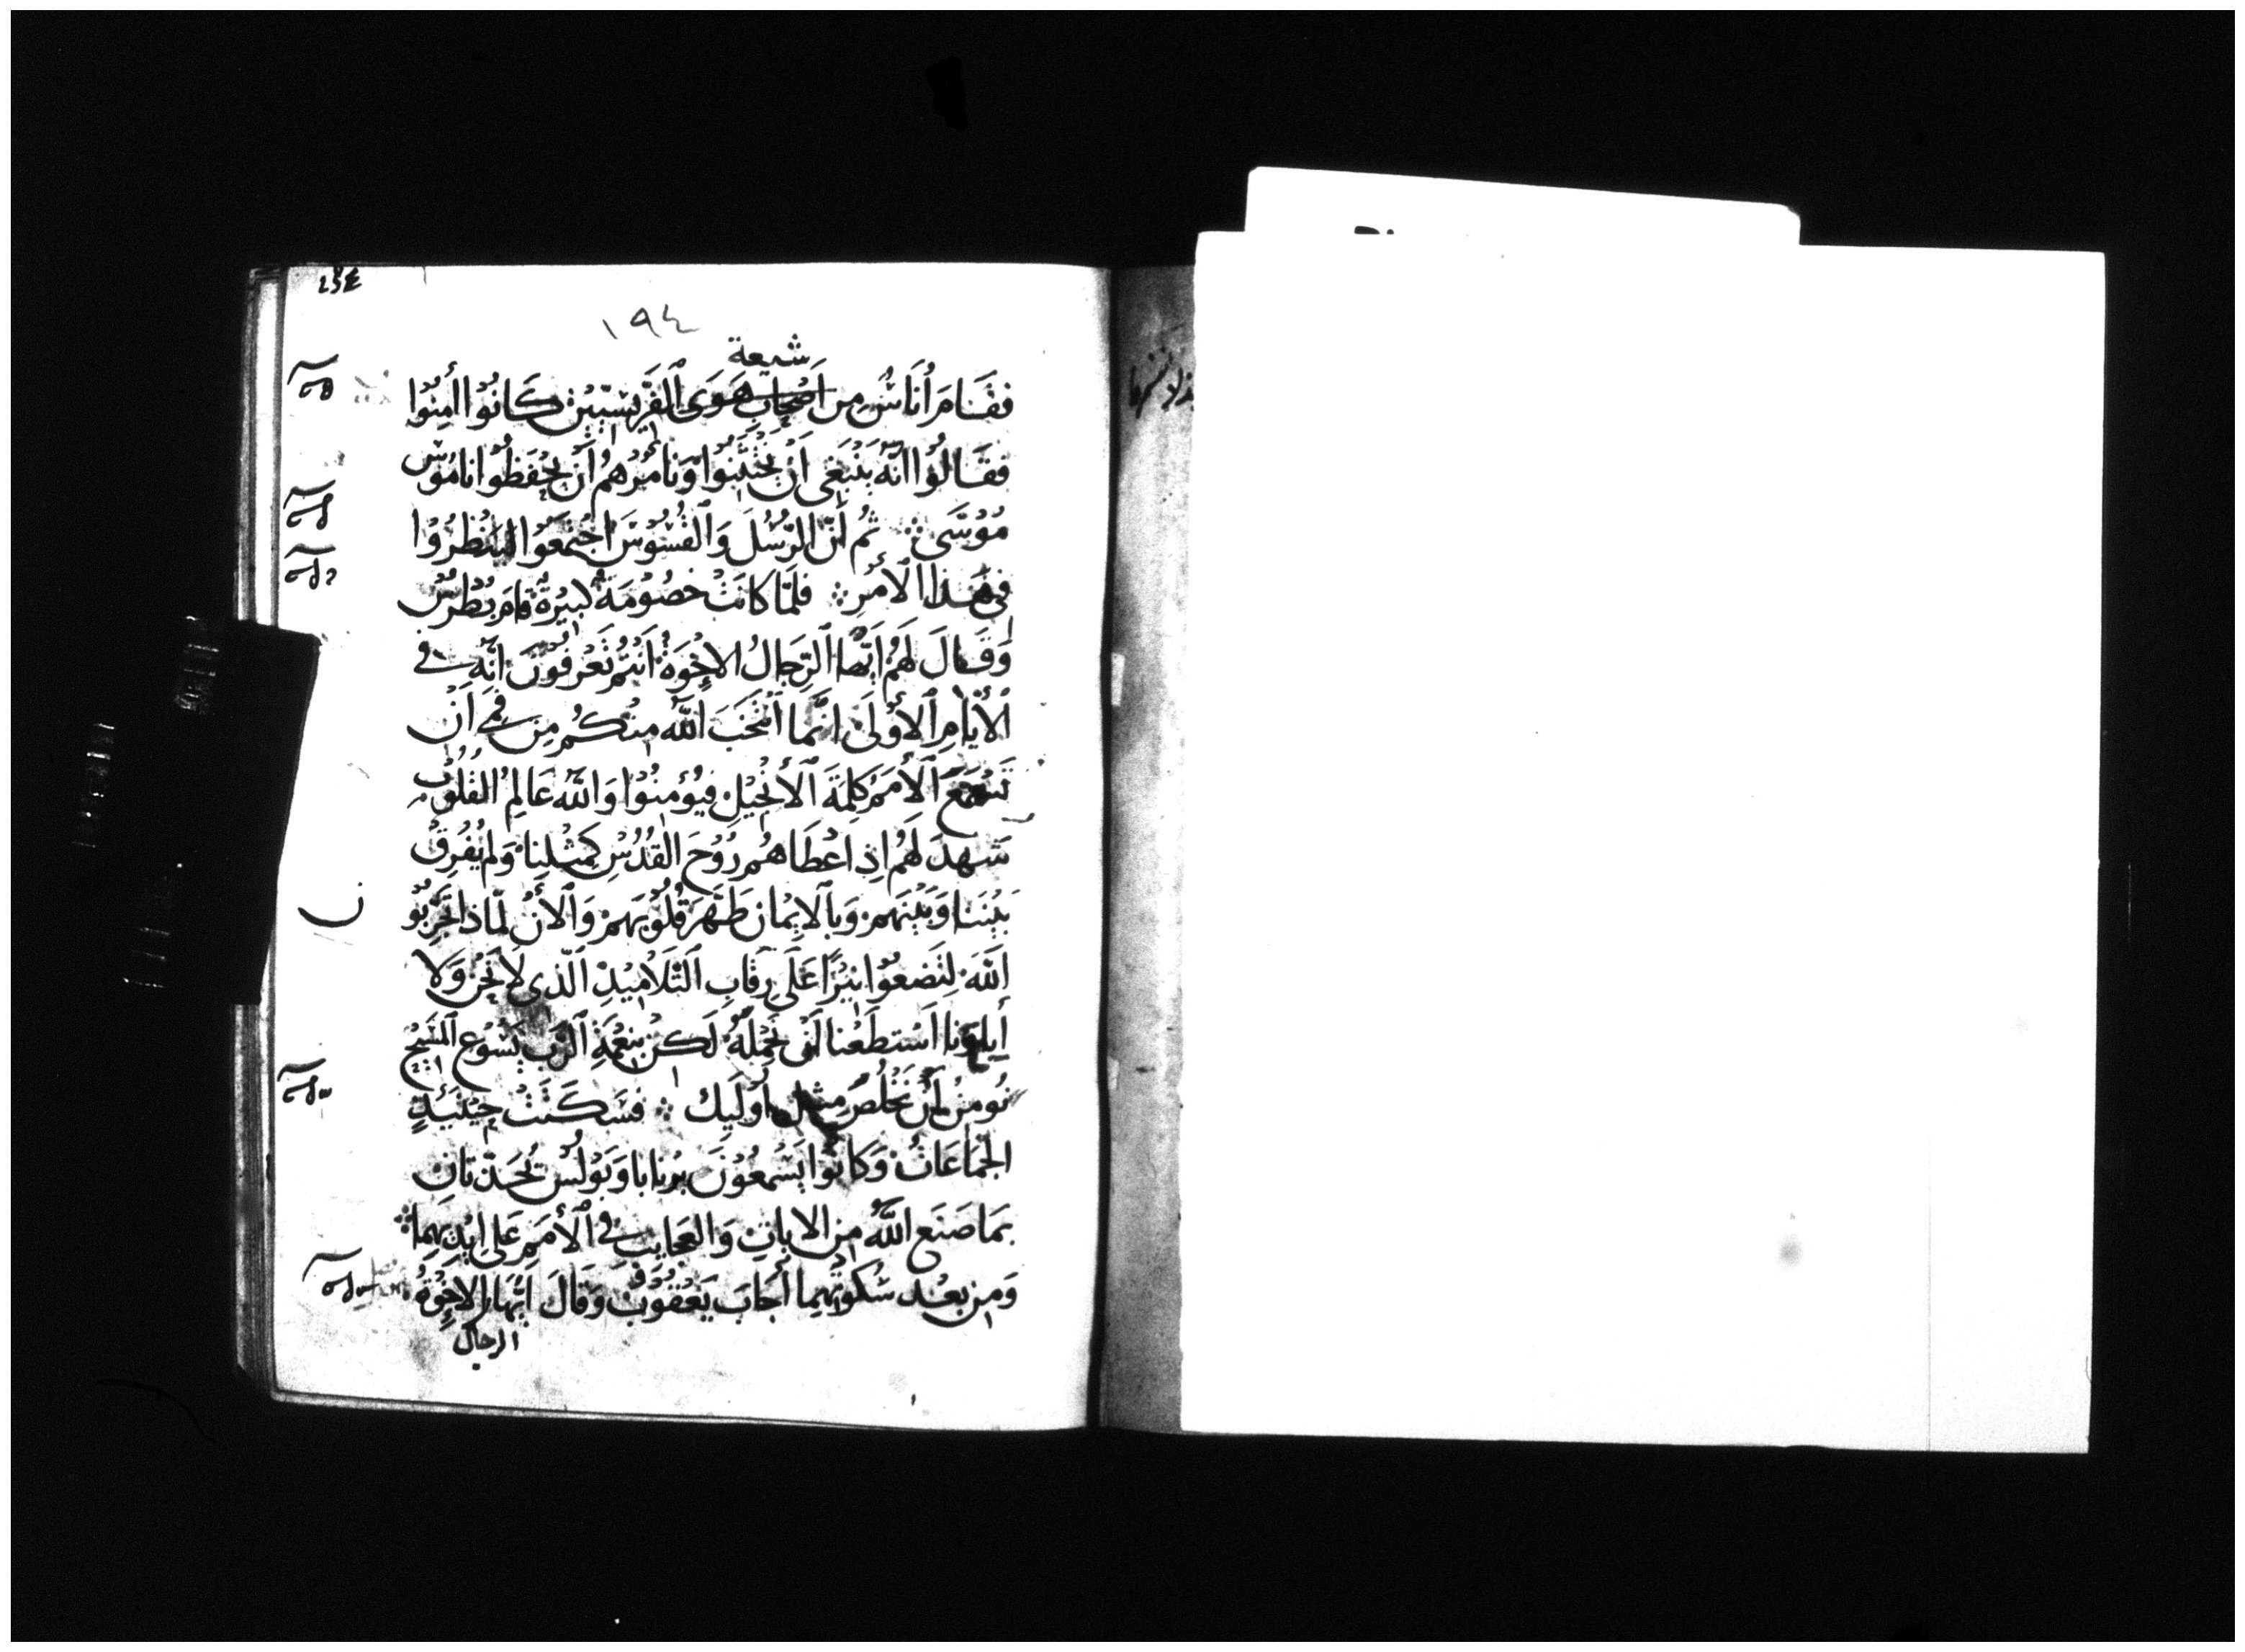 ١٩٤
شيعة
فَقَامَ أُنَاسٌ مِن أَصْحَابِ هَوَى ٱلفَرِّيسِيِّيْن كَانُوْا اٰمِنُوْا
فقَالُوْا انَّهُ يَنْبَغِي أَنْ يَخْتَتِنُوا وَنَأْمُرْهُمْ أَنْ يَحْفَظُوا نَامُوْسَ
مُوْسَى ۞ ثُم أَنّ الرُّسُلَ وَٱلقُسُوْسَ اجْتمَعَوْا لِيَنْظُرُوْا
فِي هَذَا الأَمْرِ ۞ فلَمَّا كَانَتْ خصُوْمَةٌ كبيْرَةٌ قامَ بُطْرُسُ
وَقَالَ لَهُم أَيُّهَا ٱلرِّجَالُ الإِخْوَةُ أَنتُمْ تَعْرفُوْنَ انَّهُ فِي
ٱلأَيَّامِ ٱلأُوْلَى انَّمَا ٱنْتَخَبَ ٱللَّهُ مِنْكُم مِن فمِي أَنْ
تَسْمَعَ ٱلأُمَمُ كَلِمَةَ ٱلأَنْجِيْلِ فيُؤمِنُوْا وَاللَّهُ عَالِمُ القُلُوْبِ
شَهِدَ لَهُم إِذ اعْطَاهُم رُوْحَ القُدُسِ كَمِثْلِنَا وَلم يُفْرِقْ
بَيْنَنَا وَبَيْنَهم وَبِٱلايْمَان طَهَّرَ قُلُوْبَهم وَٱلأَنْ لِمَاذَا تُجَرِّبُوْ
اللَّهَ لِتَضَعُوْا نِيْرًا عَلَى رِقَابِ ٱلتَّلَامِيْذِ ٱلَّذِي لَا نَحْن وَلا
أَباؤنا ٱسْتطَعْنا لَنْ نَحْمِلَهُ لَكِنْ بِنِعْمَةِ ٱلرَّبِ يَسُوْع ٱلمَسِيْحِ
نُومِنُ أَنْ نَخْلُصَ مِثل أُولَيِك ۞ فسَكَتَتْ حِيْنَئِذٍ
الجَمَاعَاتُ وَكَانُوْا يَسْمَعُوْنَ بَرْنابا وَبَوْلُسْ يُحَدِّثَانِ
بمَا صَنَعَ اللَّهُ مِن الايَاتِ وَالعجَايِبِ فِي ٱلأُمَمِ عَلى ايْدِيْهِمَا ۞
وَمِن بعْد سُكوْتِهِمَا أَجَابَ يَعْقُوْبْ وَقَالَ ايُّهَا الإِخْوَةُ
الرجال